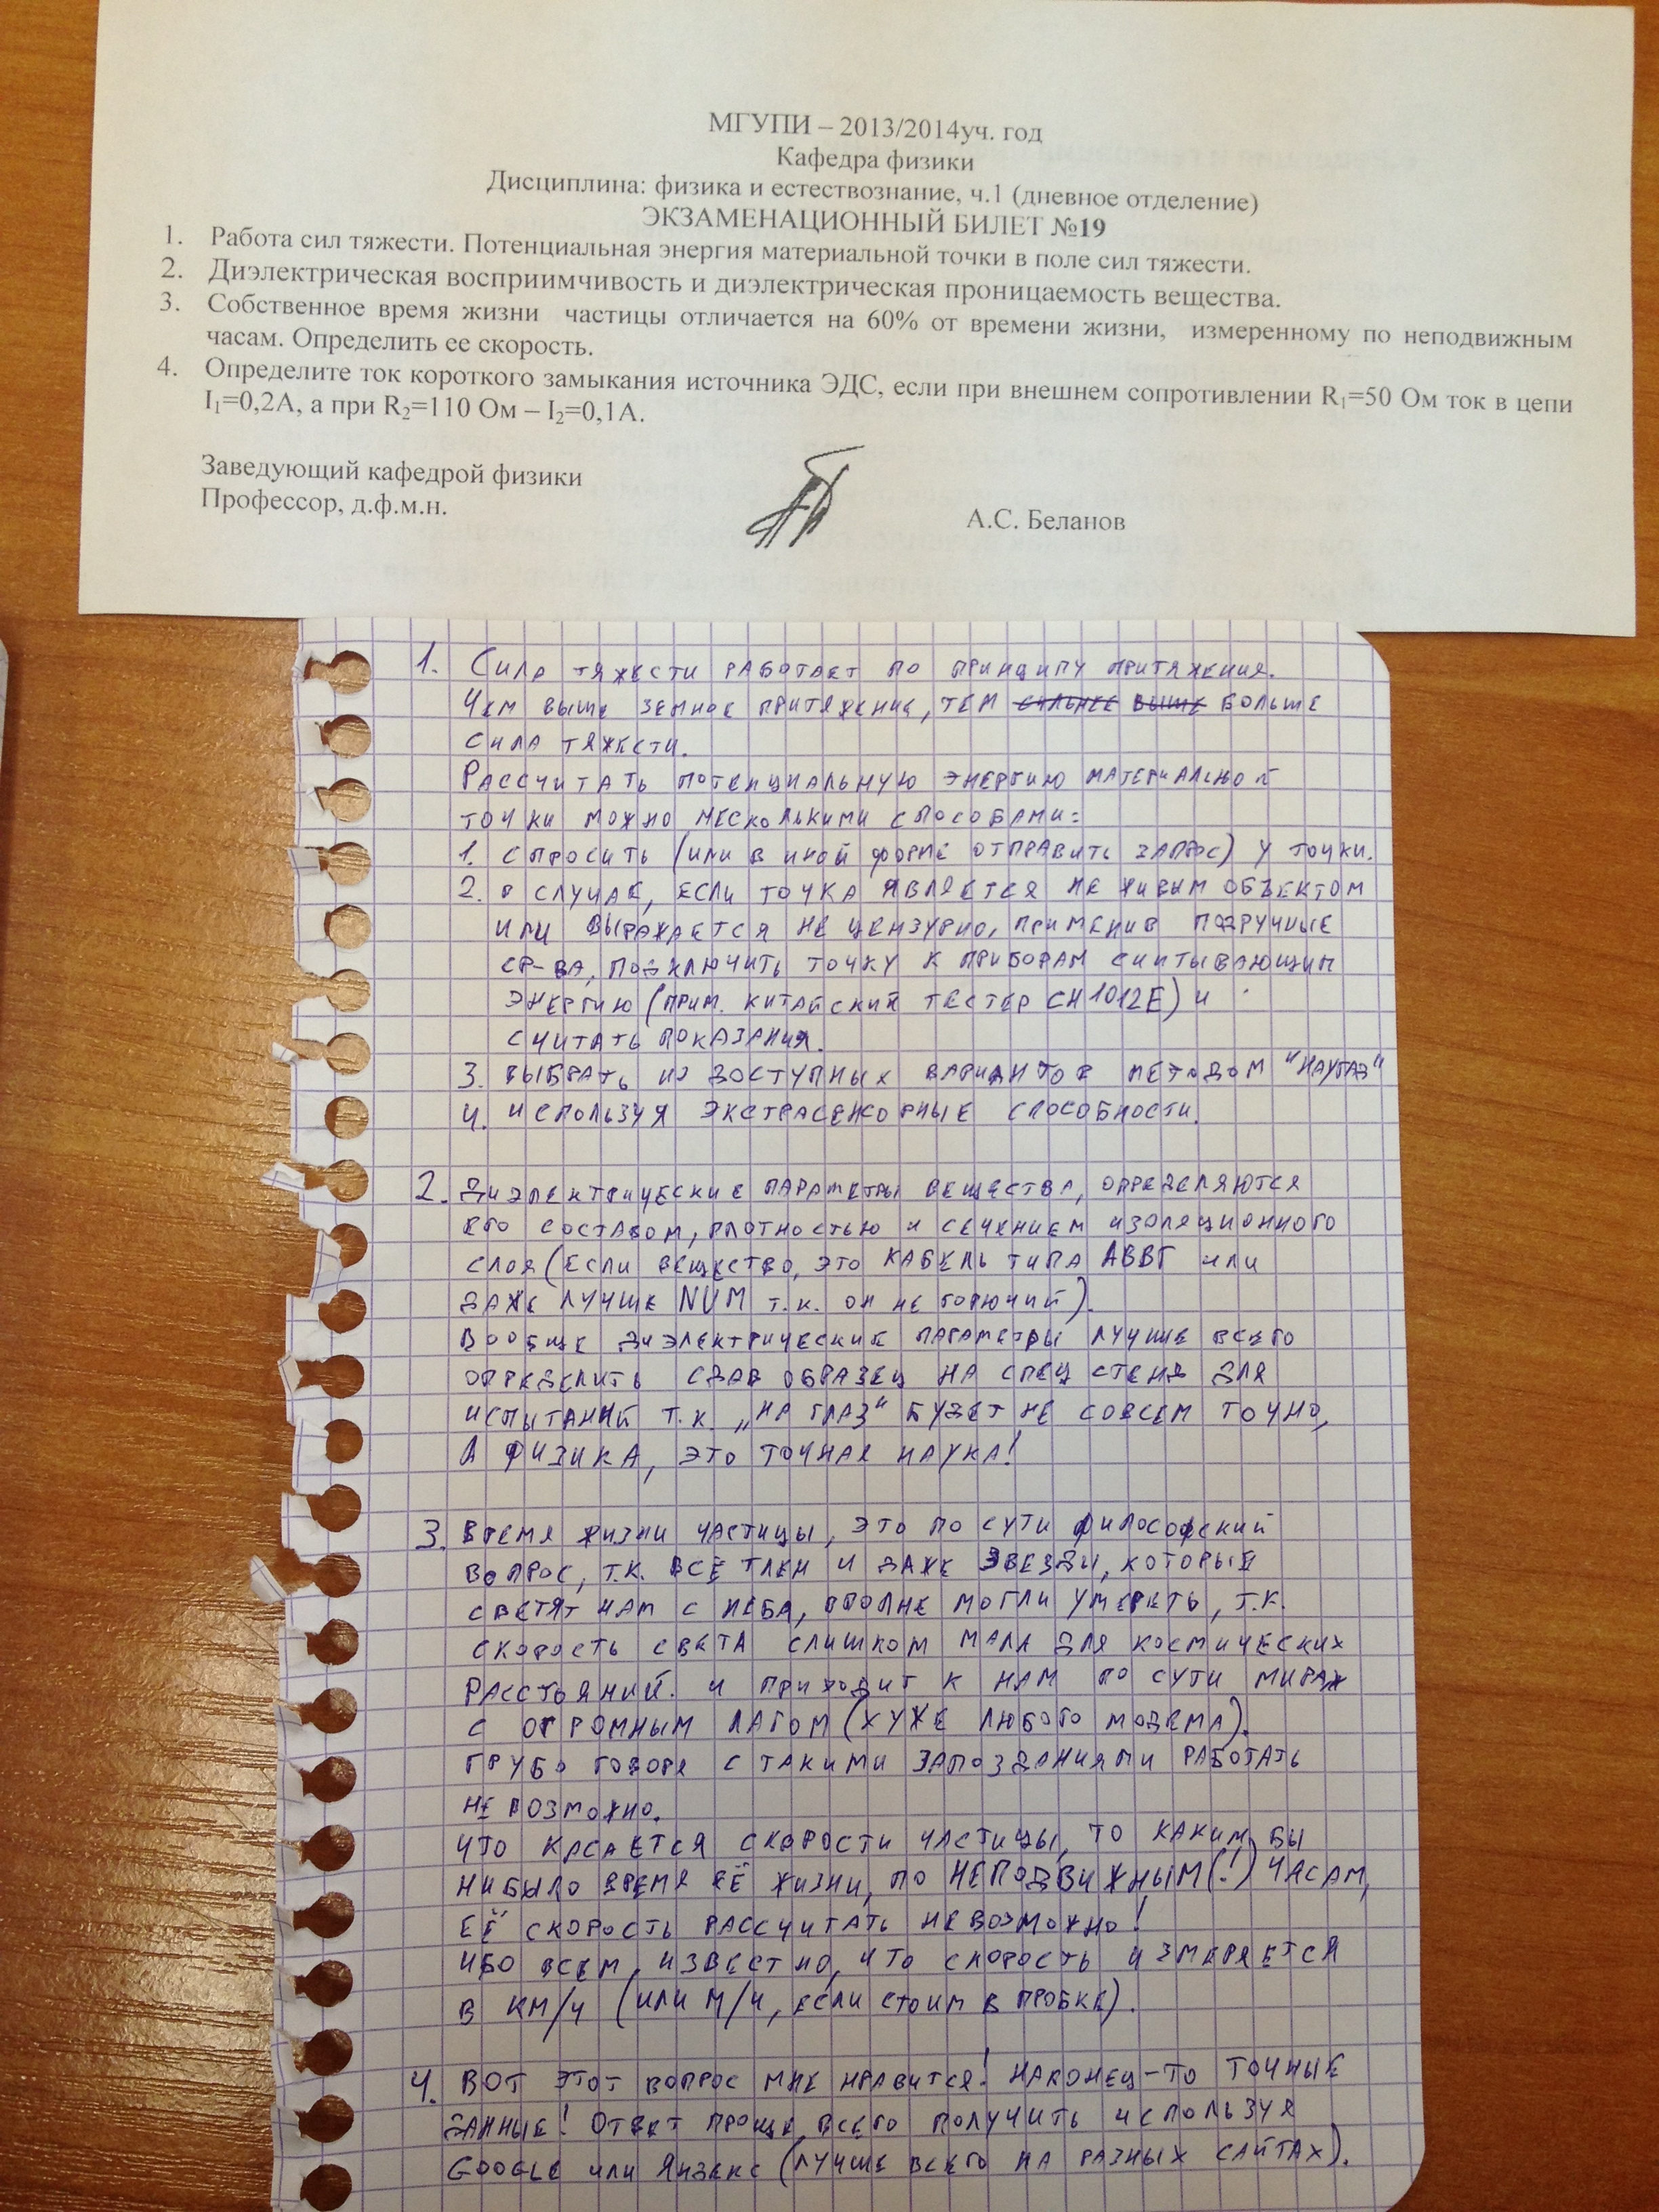 МГУПИ – 2013/2014уч. год
Кафедра физики
Дисциплина: физика и естествознание, ч.1 (дневное отделение)
ЭКЗАМЕНАЦИОННЫЙ БИЛЕТ №19
1. Работа сил тяжести. Потенциальная энергия материальной точки в поле сил тяжести.
2. Диэлектрическая восприимчивость и диэлектрическая проницаемость вещества.
3. Собственное время жизни частицы отличается на 60% от времени жизни, измеренному по неподвижным
часам. Определить ее скорость.
4. Определите ток короткого замыкания источника ЭДС, если при внешнем сопротивлении R₁=50 Ом ток в цепи
I₁=0,2А, а при R₂=110 Ом – I₂=0,1А.
Заведующий кафедрой физики
Профессор, д.ф.м.н.
А.С. Беланов
1. Сила тяжести работает по принципу притяжения.
Чем выше земное притяжение, тем сильнее выше больше
сила тяжести.
Рассчитать потенциальную энергию материальной
точки можно несколькими способами:
1. спросить (или в иной форме отправить запрос) у точки.
2. в случае, если точка является не живым объектом
или выражается не цензурно, применив подручные
ср-ва, подключить точку к приборам считывающим
энергию (прим. китайский тестер CH1012E) и
считать показания.
3. выбрать из доступных вариантов методом "наугад"
4. используя экстрасенсорные способности.
2. Диэлектрические параметры вещества, определяются
его составом, плотностью и сечением изоляционного
слоя (если вещество, это кабель типа АВВГ или
даже лучше NUM т.к. он не горючий).
Вообще диэлектрические параметры лучше всего
определить сдав образец на спец стенд для
испытаний т.к. „на глаз" будет не совсем точно,
а физика, это точная наука!
3. Время жизни частицы, это по сути философский
вопрос, т.к. всё тлен и даже звезды, которые
светят нам с неба, вполне могли умереть, т.к.
скорость света слишком мала для космических
расстояний. и приходит к нам по сути мираж
с огромным лагом (хуже любого модема).
Грубо говоря с такими запозданиями работать
не возможно.
Что касается скорости частицы, то каким бы
ни было время её жизни, по НЕПОДВИЖНЫМ(!) часам,
её скорость рассчитать невозможно!
Ибо всем известно, что скорость измеряется
в км/ч (или м/ч, если стоим в пробке).
4. Вот этот вопрос мне нравится! Наконец-то точные
данные! Ответ проще всего получить используя
GOOGLE или Яндекс (лучше всего на разных сайтах).